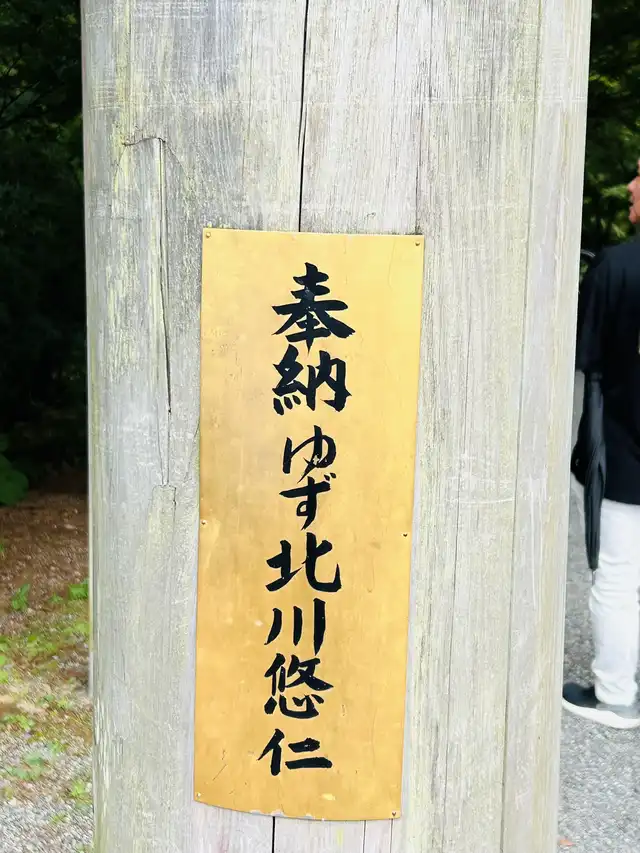 奉納 ゆず 北川悠仁